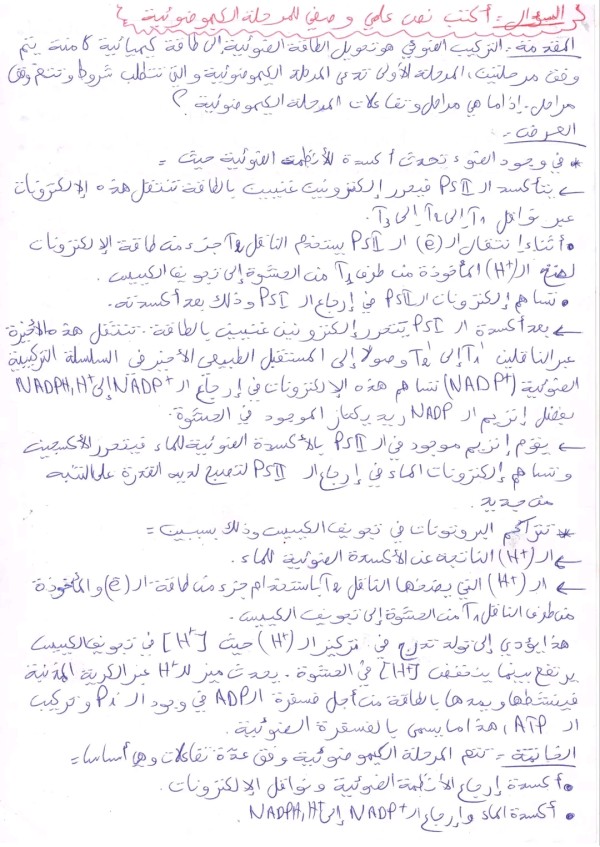 السؤال = أكتب نص علمي وصفي للمرحلة الكيموضوئية
المقدمة = التركيب الضوئي هو تحويل الطاقة الضوئية إلى طاقة كيميائية كامنة يتم
وفق مرحلتين، المرحلة الأولى تدعى المرحلة الكيموضوئية والتي تتطلب شروط وتتم وفق
مراحل. إذا ما هي مراحل وتفاعلات المرحلة الكيموضوئية ؟
العرض =
* في وجود الضوء تحدث أكسدة للأنظمة الضوئية حيث =
← يتأكسد الـ PSII فيحرر إلكترونين غنيين بالطاقة تنتقل هذه الإلكترونات
عبر نواقل T1 إلى T2 إلى T3.
• أثناء انتقال الـ (ē) الـ PSII يستخدم الناقل T2 جزء من طاقة الإلكترونات
لضخ الـ (H+) المأخوذة من طرف T1 من الحشوة إلى تجويف الكييس.
• تساهم إلكترونات الـ PSII في إرجاع الـ PSI وذلك بعد أكسدته.
← بعد أكسدة الـ PSI يتحرر إلكترونين غنيين بالطاقة. تنتقل هذه الأخيرة
عبر الناقلين T'1 إلى T'2 وصولا إلى المستقبل الطبيعي الأخير في السلسلة التركيبية
الضوئية (NADP+) تساهم هذه الإلكترونات في إرجاع الـ NADP+ إلى NADPH,H+
بفضل إنزيم الـ NADP ريديكتاز الموجود في الحشوة.
← يقوم إنزيم موجود في الـ PSII بالأكسدة الضوئية للماء فيتحرر الأكسجين
وتساهم إلكترونات الماء في إرجاع الـ PSII لتصبح لديه القدرة على التنبه
من جديد.
* تتراكم البروتونات في تجويف الكييس وذلك بسببين =
← الـ (H+) الناتجة عن الأكسدة الضوئية للماء.
← الـ (H+) التي يضخها الناقل T2 باستخدام جزء من طاقة الـ (ē) والمأخوذة
من طرف الناقل T1 من الحشوة إلى تجويف الكييس.
هذا يؤدي إلى تولد تدرج في تركيز الـ (H+) حيث [H+] في تجويف الكييس
يرتفع بينما ينخفض [H+] في الحشوة. يحدث ميز للـ H+ عبر الكرية المذنبة
فينشطها ويمدها بالطاقة من أجل فسفرة الـ ADP في وجود الـ Pi وتركيب
الـ ATP، هذا ما يسمى بالفسفرة الضوئية.
الخاتمة = تتم المرحلة الكيموضوئية وفق عدة تفاعلات وهي أساسا =
• أكسدة إرجاع الأنظمة الضوئية ونواقل الإلكترونات.
• أكسدة الماء وإرجاع الـ NADP+ إلى NADPH,H+.